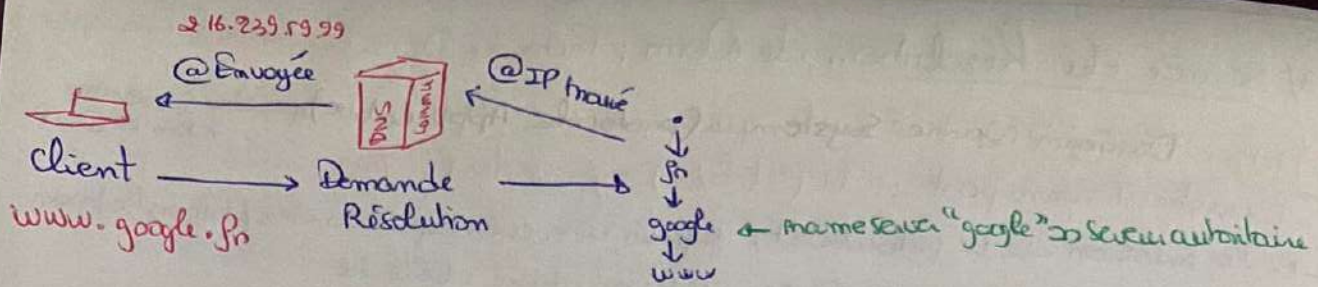 216.239.59.99
@Envoyée
@IP trouvé
DNS
.
Client
Demande
Résolution
fr
www.google.fr
google ← nameserver "google" => serveur autoritaire
www